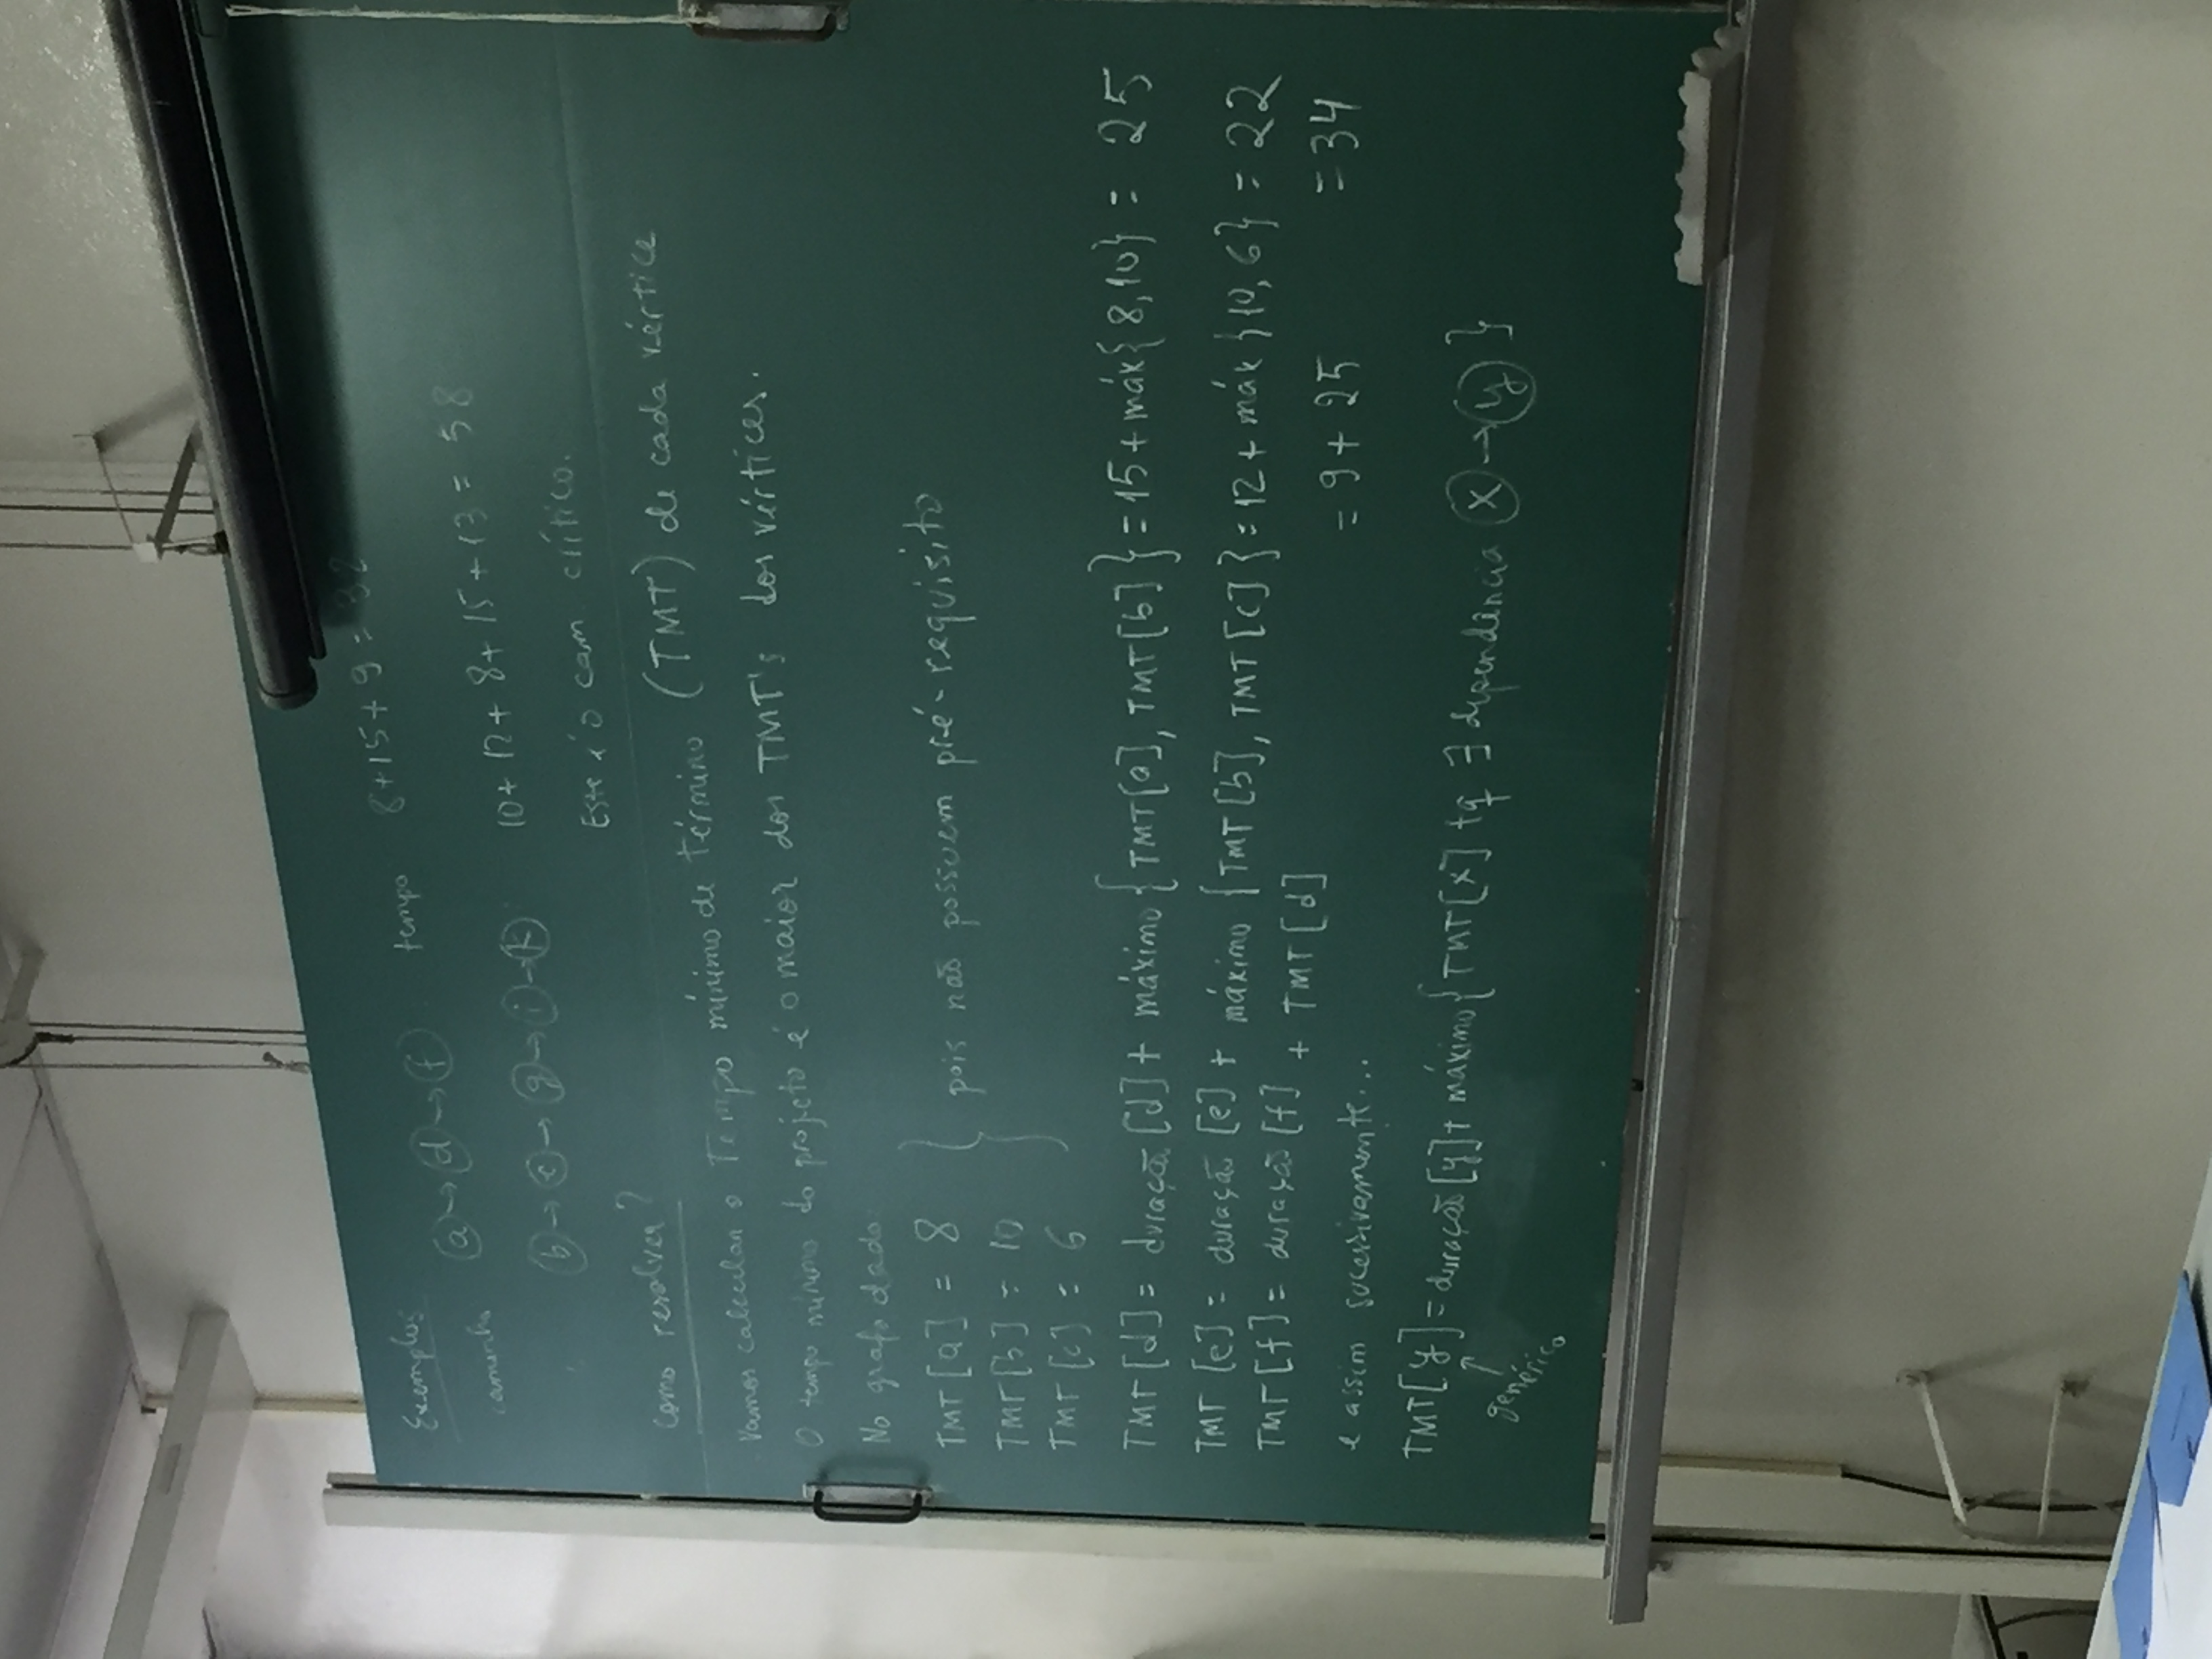 Exemplos
caminho a → d → f tempo 8+15+9 = 32
b → e → g → i → k 10+12+8+15+13 = 58
Este é o cam. crítico.
Como resolver?
Vamos calcular o Tempo mínimo de término (TMT) de cada vértice
O tempo mínimo do projeto é o maior dos TMT's dos vértices.
No grafo dado
TMT[a] = 8
TMT[b] = 10 } pois não possuem pré-requisito
TMT[c] = 6
TMT[d] = duração[d] + máximo{TMT[a], TMT[b]} = 15 + máx{8,10} = 25
TMT[e] = duração[e] + máximo{TMT[b], TMT[c]} = 12 + máx{10,6} = 22
TMT[f] = duração[f] + TMT[d] = 9 + 25 = 34
e assim sucessivamente...
TMT[y] = duração[y] + máximo{TMT[x] tq ∃ dependência x → y}
↑
genérico